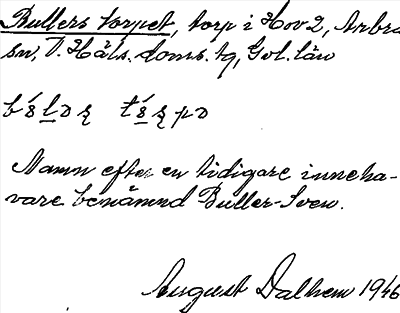 Bullers torpet, torp i Hov 2, Arbrå
sn, V. Häls. doms. tg, Gvl. län
Namn efter en tidigare inneha-
vare benämnd Buller-Sven.
August Dalhem 1946